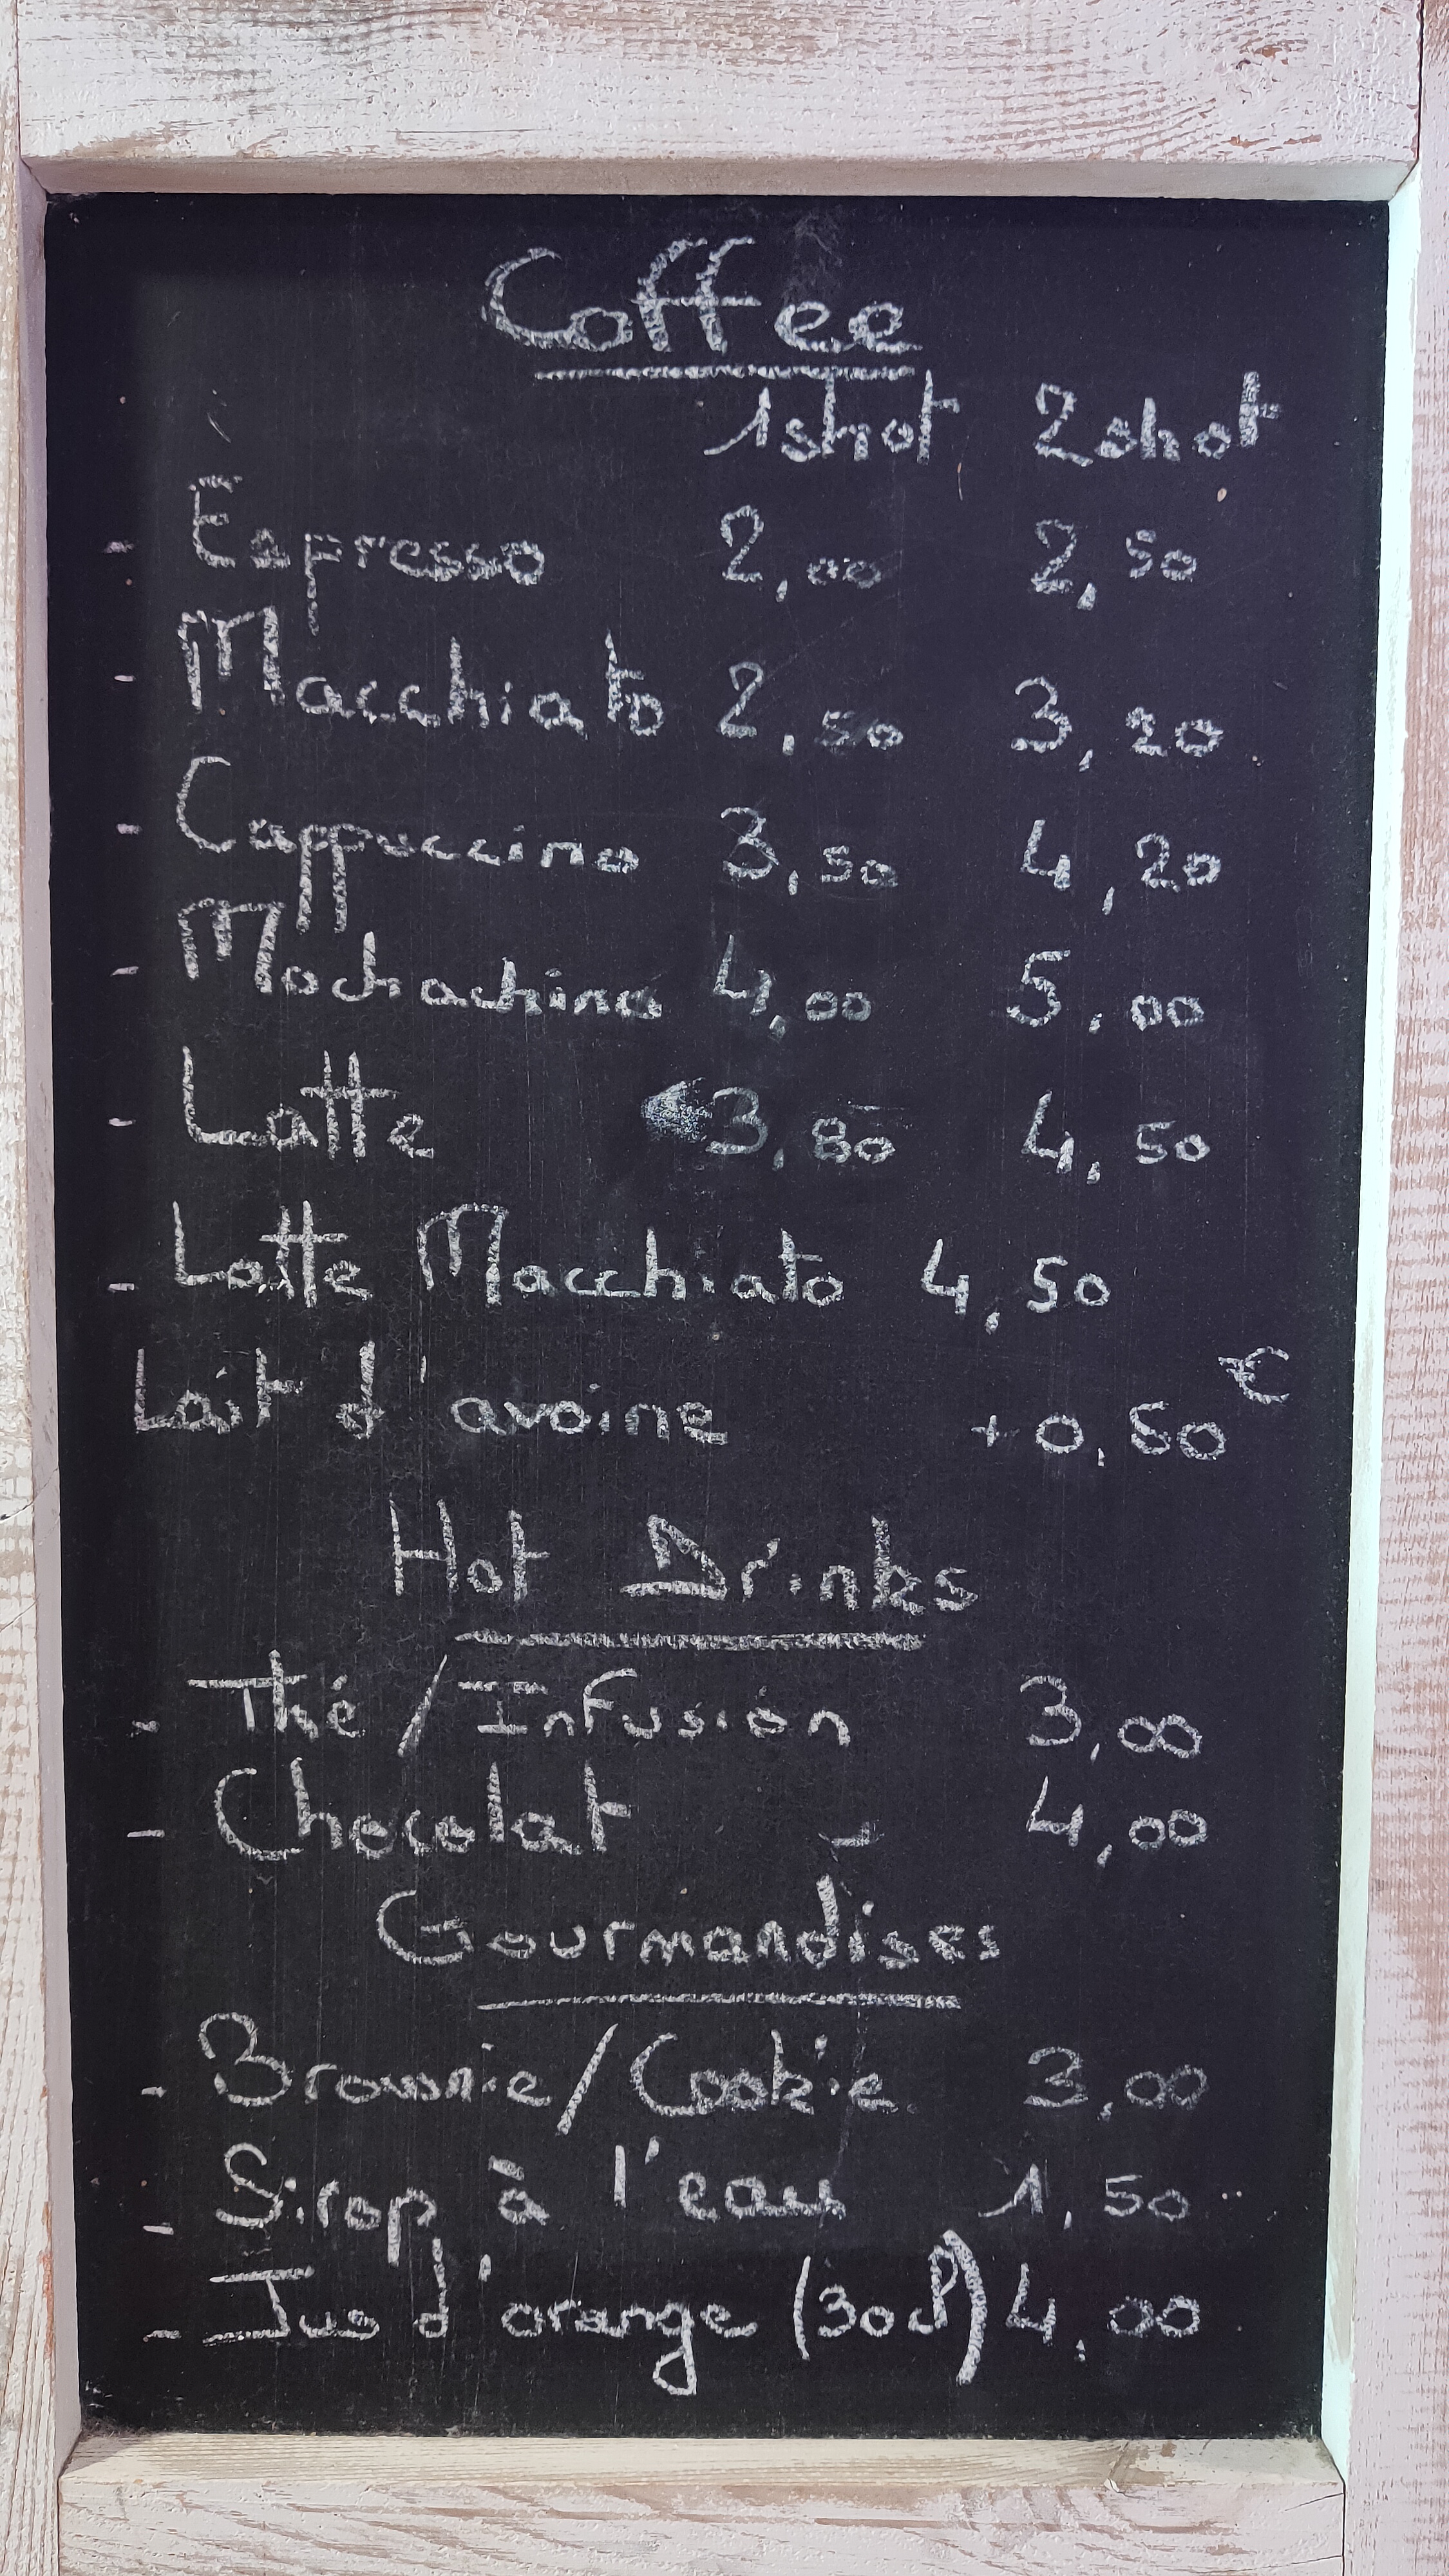 Coffee
1shot 2shot
- Espresso 2,00 2,50
- Macchiato 2,50 3,20
- Cappuccino 3,50 4,20
- Mochachino 4,00 5,00
- Latte 3,80 4,50
- Latte Macchiato 4,50
Lait d'avoine +0,50€
Hot Drinks
- Thé/Infusion 3,00
- Chocolat 4,00
Gourmandises
- Brownie/Cookie 3,00
- Sirop à l'eau 1,50
- Jus d'orange (30cl) 4,00